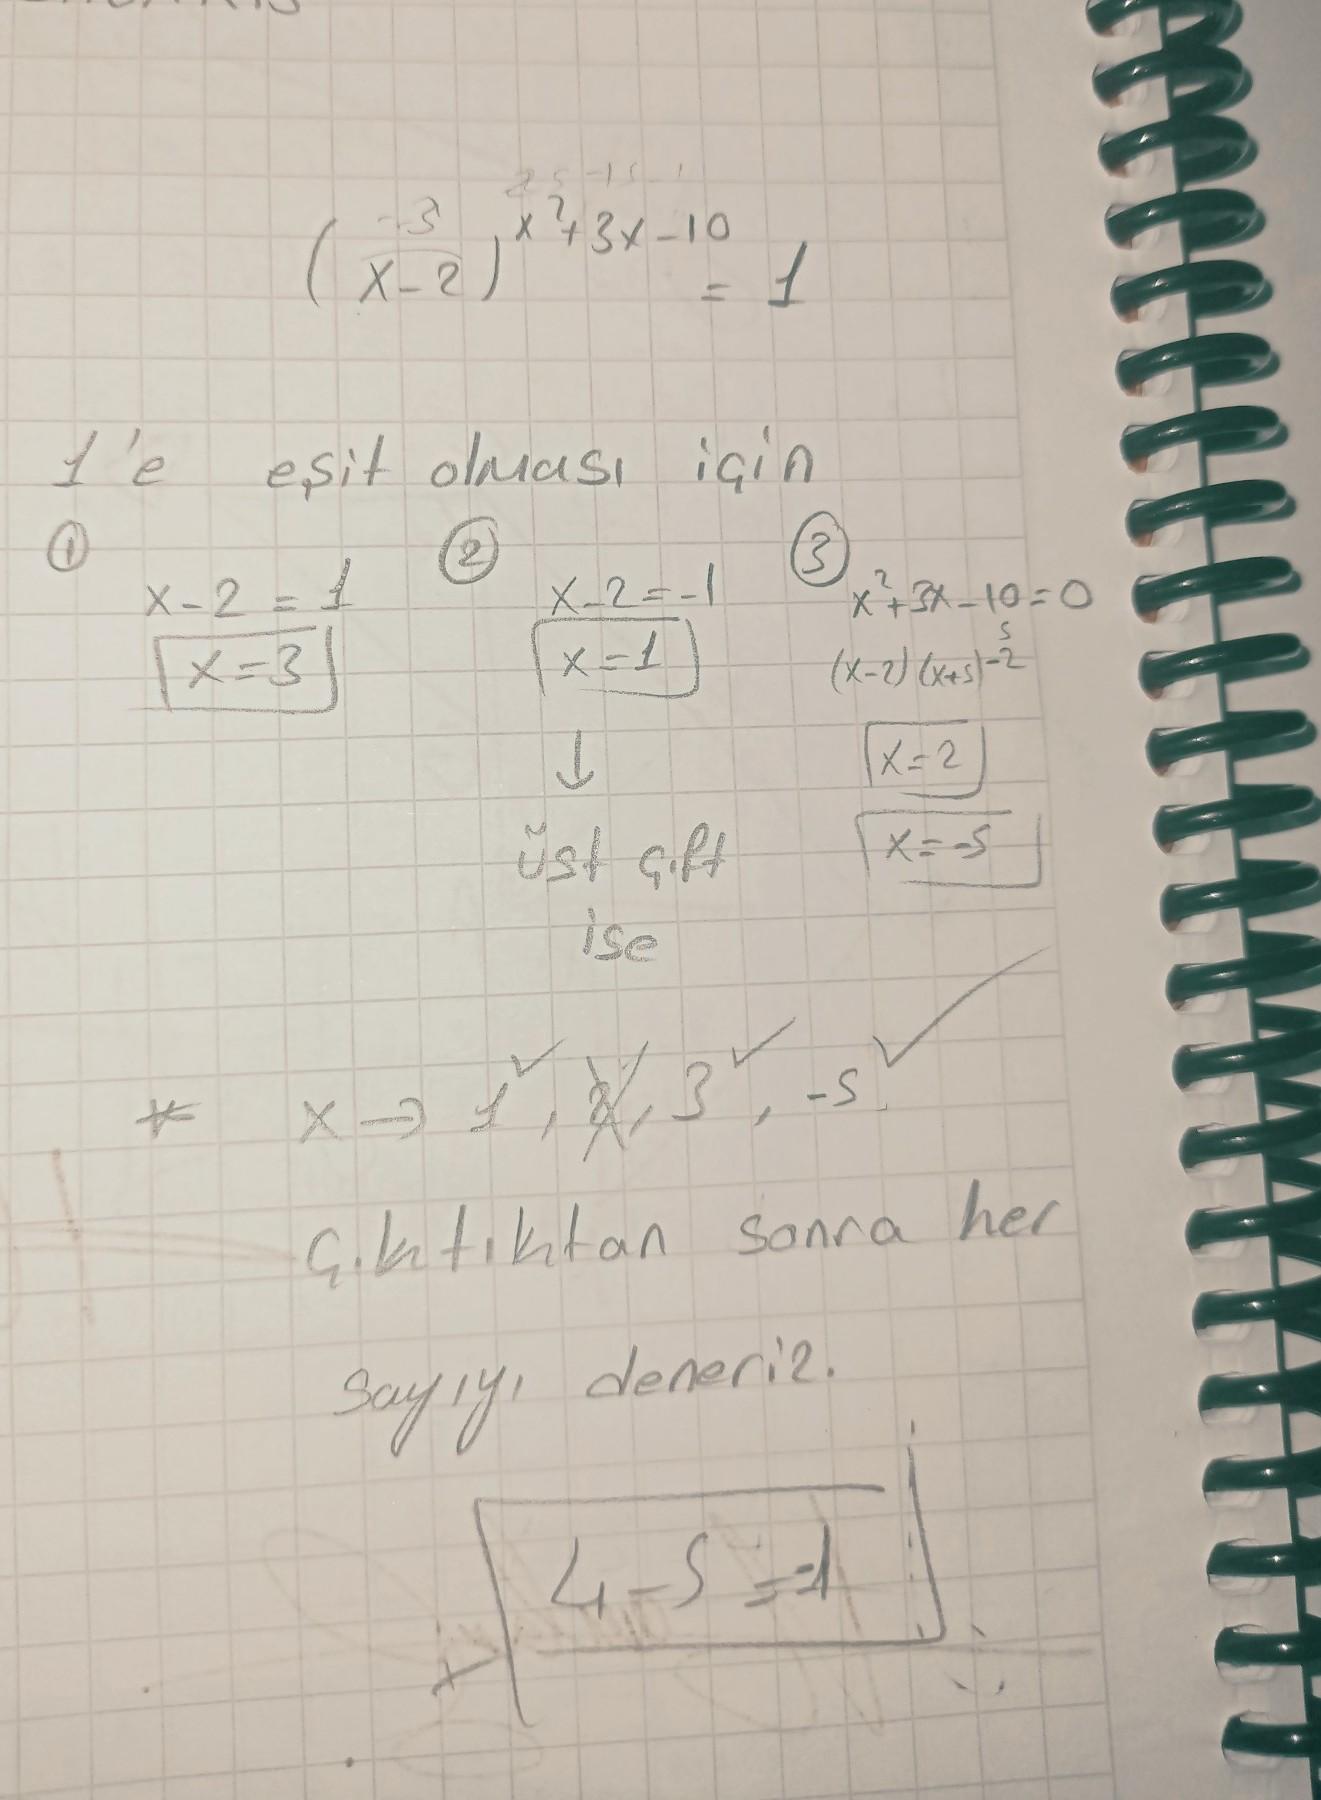 (x-2)^x²+3x-10 = 1
1'e eşit olması için
① ② ③
x-2 = 1 x-2=-1 x²+3x-10=0
x=3 x=1 (x-2) (x+5)
↓ x=2
üst çift x=-5
ise
* x → 1 ✓, 2, 3 ✓, -5 ✓
çıktıktan sonra her
sayıyı deneriz.
4-5=-1